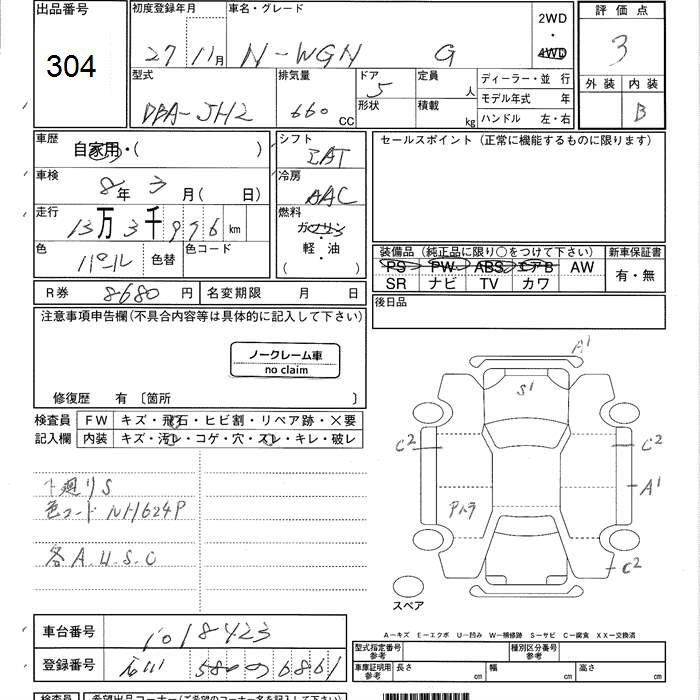 出品番号 304
初度登録年月 27 11月
車名・グレード N-WGN G
2WD・4WD
評価点 3
外装 内装 B
型式 DBA-JH2
排気量 660 CC
ドア 5
形状
定員 人
積載 kg
ディーラー・並行
モデル年式 年
ハンドル 左・右
車歴 自家用・( )
車検 8年 3月( 日)
走行 13万3千996km
色 パール 色替
色コード
シフト IAT
冷房 AAC
燃料 ガソリン
軽・油
( )
セールスポイント(正常に機能するものに限ります)
装備品(純正品に限り○をつけて下さい) 新車保証書
PS PW ABS エアB AW 有・無
SR ナビ TV カワ
R券 8680円 名変期限 月 日
後日品
注意事項申告欄(不具合内容等は具体的に記入して下さい)
ノークレーム車
no claim
修復歴 有〔箇所 〕
検査員 FW キズ・飛石・ヒビ割・リペア跡・×要
記入欄 内装 キズ・汚レ・コゲ・穴・スレ・キレ・破レ
A1
S1
C2 C2
A1
アトラ
C2
スペア
下廻りS
色コード NH624P
各A.U.S.C
車台番号 1018423
登録番号 580 の 6861
A—キズ E—エクボ U—凹み W—補修跡 S—サビ C—腐食 XX—交換済
型式指定番号 参考 種別区分番号 参考
車庫証明用 参考 長さ cm 幅 cm 高さ cm
検査員 希望出品コーナー(ご希望のコーナー名を記入して下さい)